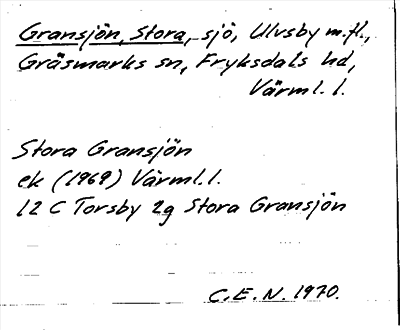 Gransjön, Stora, sjö, Ulvsby m.fl.,
Gräsmarks sn, Fryksdals hd,
Värml. l.
Stora Gransjön
ek (1969) Värml. l.
12 C Torsby 2g Stora Gransjön
C.E.N. 1970.